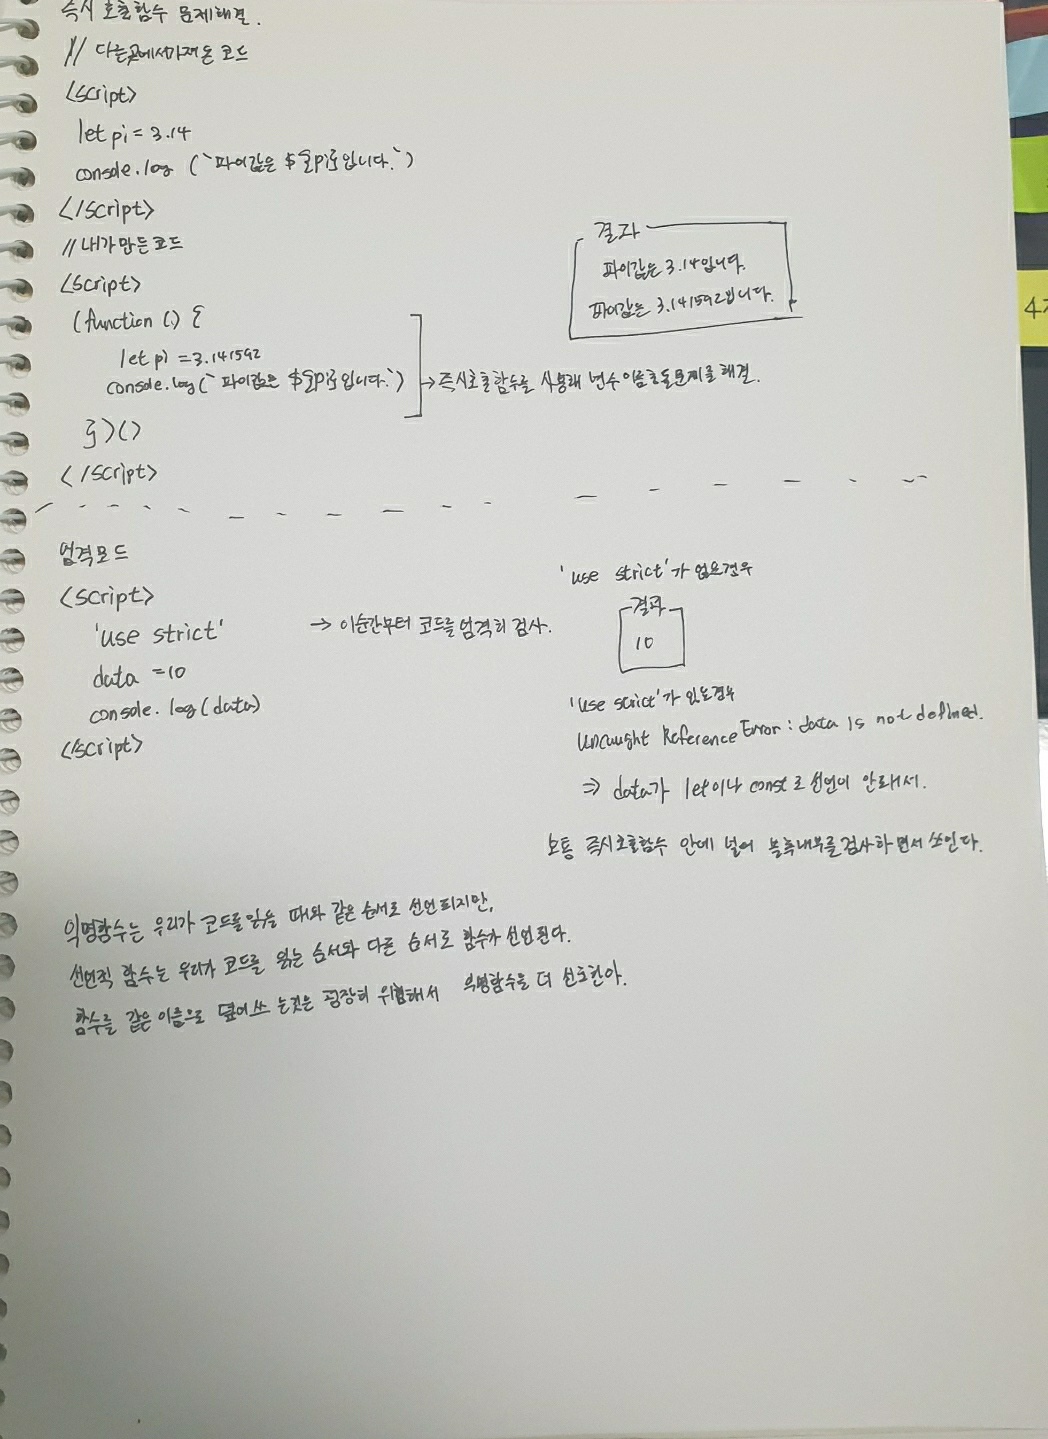 즉시 호출함수 문제해결.
// 다른곳에서가져온 코드
<script>
let pi = 3.14
console.log (`파이값은 ${pi}입니다.`)
</script>
// 내가만든코드
<script>
(function () {
let pi = 3.141592
console.log(`파이값은 ${pi}입니다.`)
})()
</script>
→ 즉시호출함수를 사용해 변수이름충돌문제를 해결.
결과
파이값은 3.14입니다.
파이값은 3.141592입니다.
엄격모드
<script>
'use strict'
data = 10
console.log(data)
</script>
→ 이순간부터 코드를 엄격히 검사.
'use strict'가 없을경우
결과
10
'use strict'가 있을경우
Uncaught ReferenceError: data is not defined.
⇒ data가 let이나 const로 선언이 안돼서.
보통 즉시호출함수 안에 넣어 블록내부를 검사하면서 쓰인다.
익명함수는 우리가 코드를 읽을 때와 같은 순서로 선언되지만,
선언적 함수는 우리가 코드를 읽는 순서와 다른 순서로 함수가 선언된다.
함수를 같은 이름으로 덮어쓰는것은 굉장히 위험해서 익명함수를 더 선호한아.
4